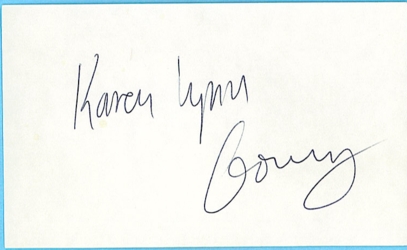 Karen Lynn
Gorney